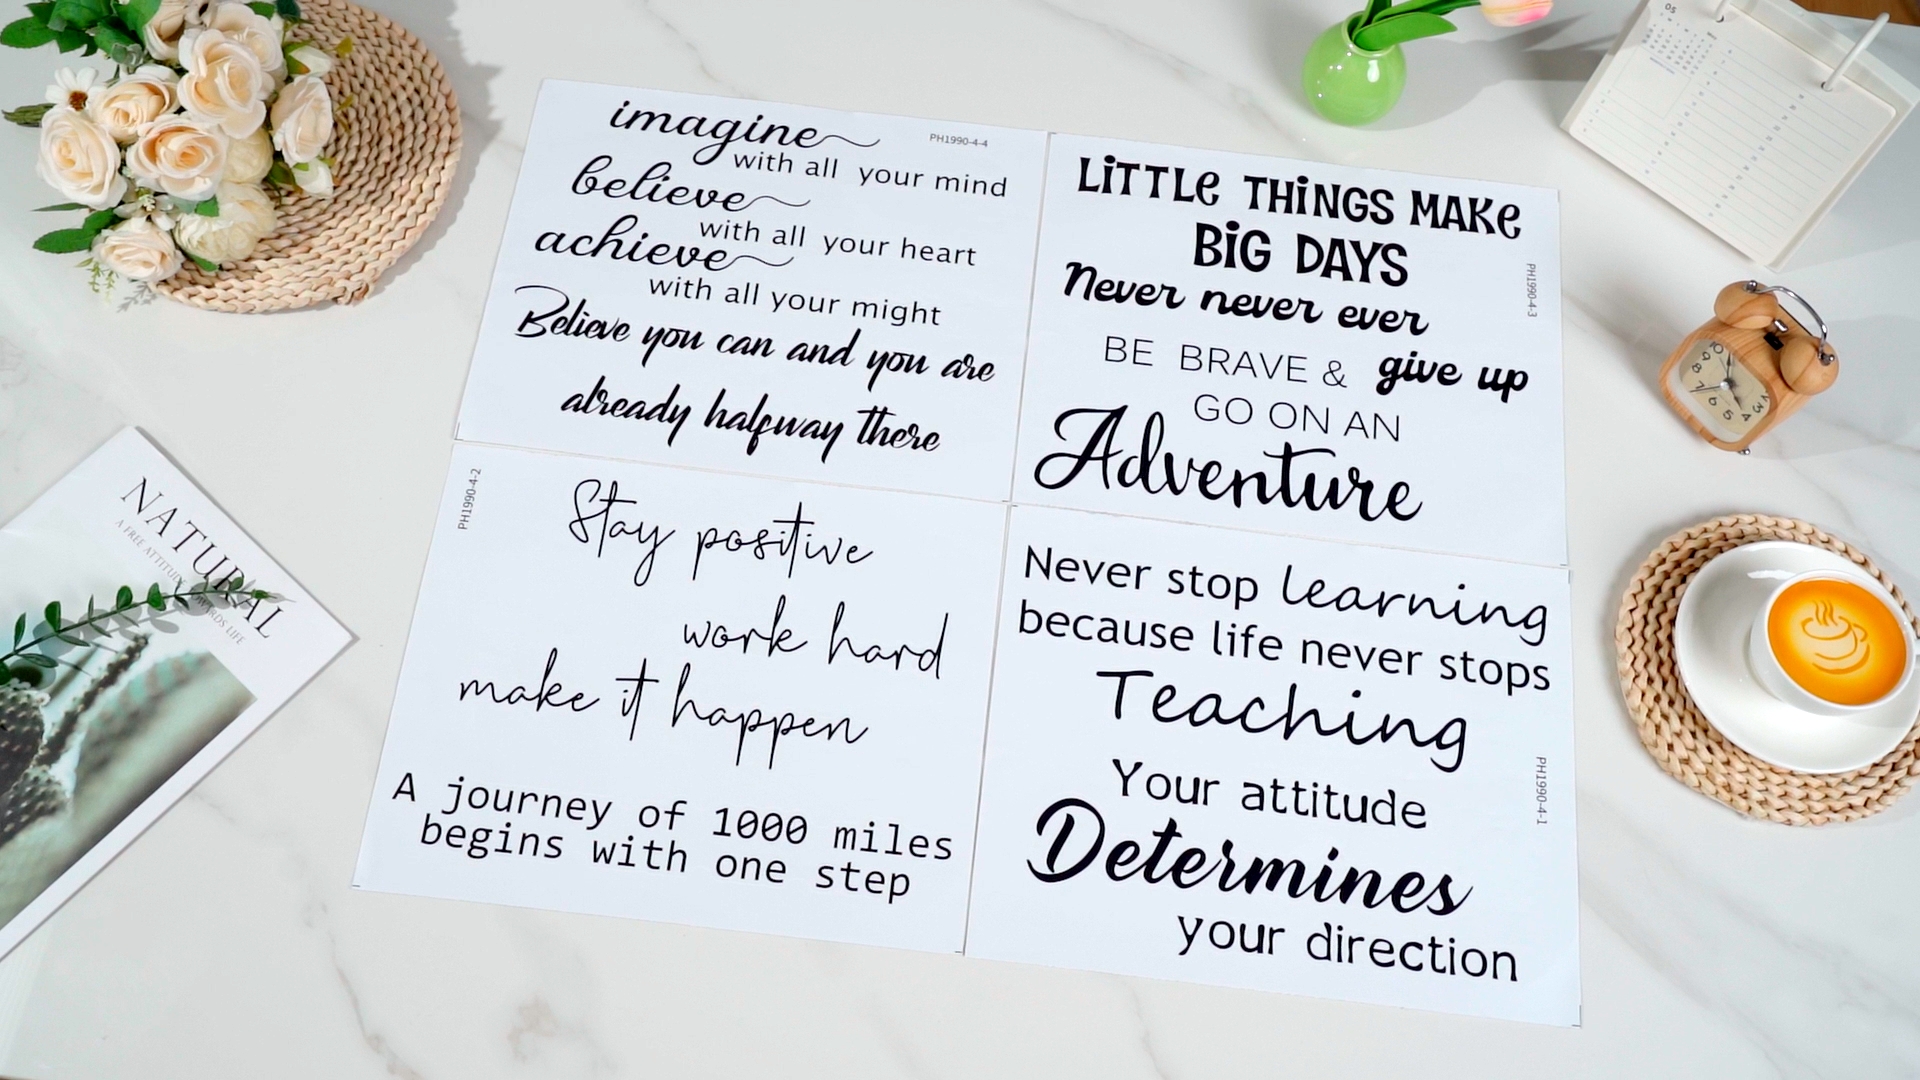 imagine
PH1990-4-4
with all your mind
believe
with all your heart
achieve
with all your might
Believe you can and you are
already halfway there
LiTTLe THiNGS MAKe
BiG DAYS
Never never ever
give up
BE BRAVE &
GO ON AN
Adventure
PH1990-4-3
PH1990-4-2
Stay positive
work hard
make it happen
A journey of 1000 miles
begins with one step
Never stop learning
because life never stops
Teaching
Your attitude
Determines
your direction
PH1990-4-1
NATURAL
A FREE ATTITUDE TOWARDS LIFE
05